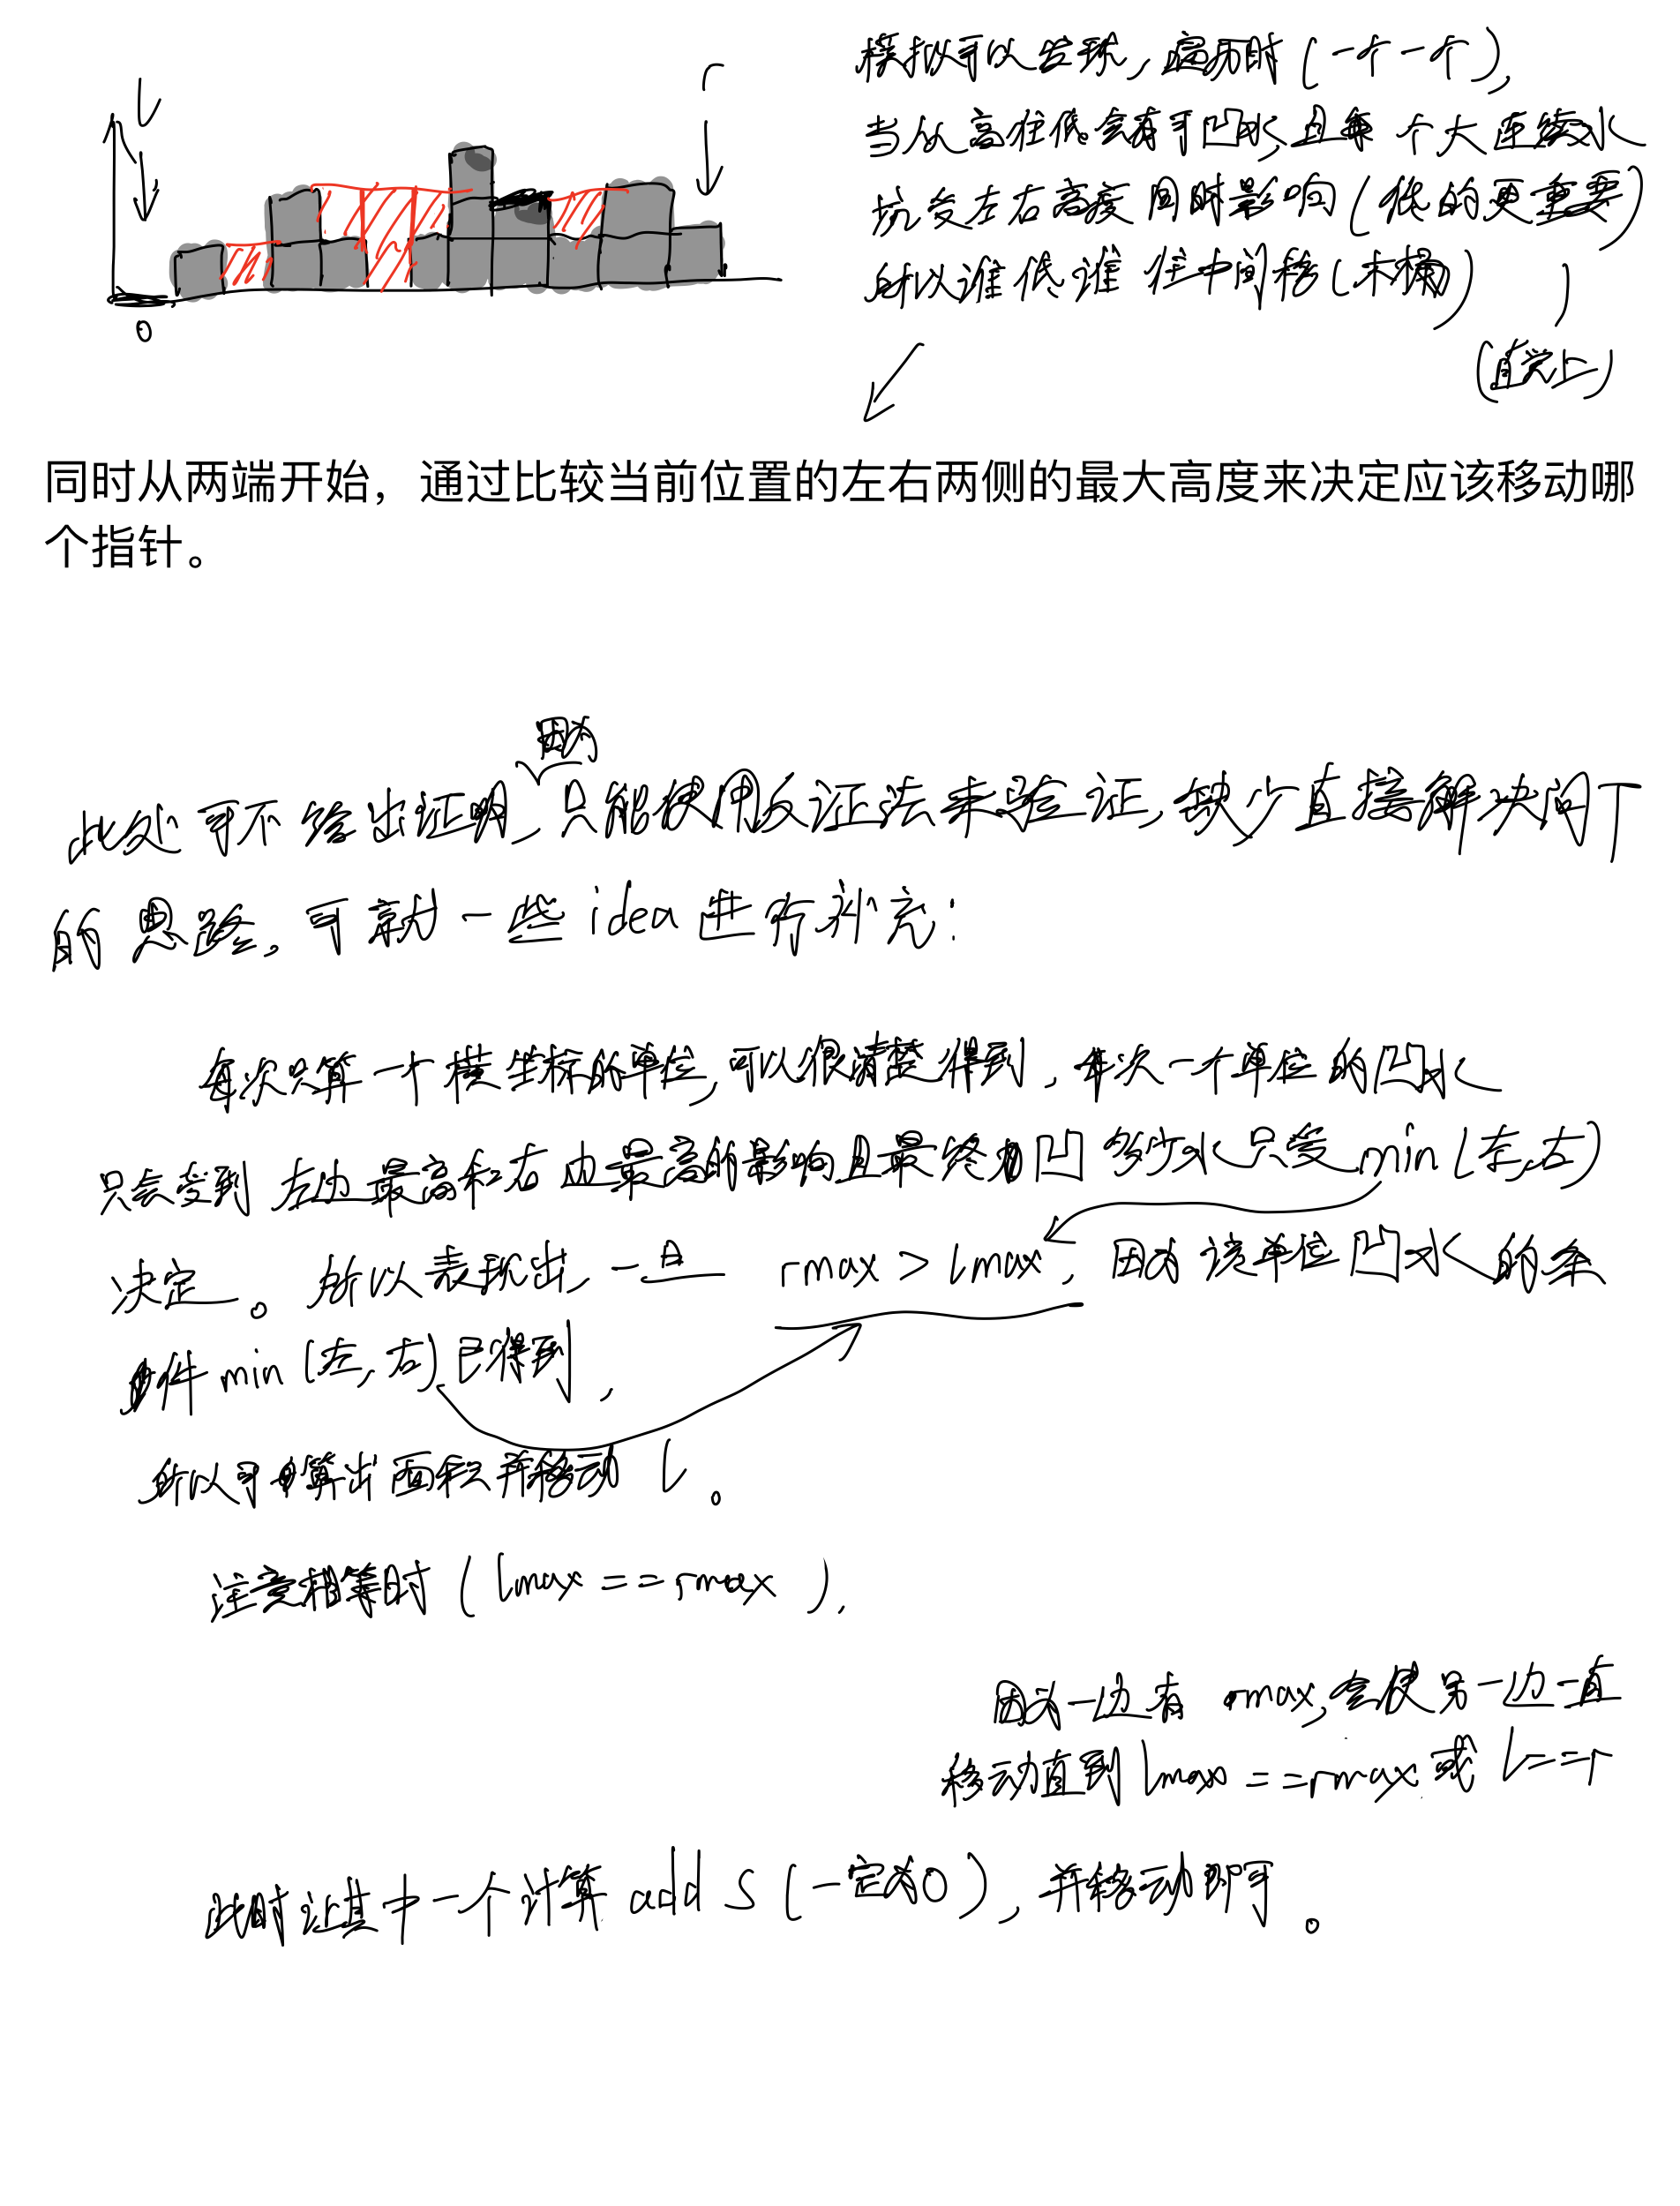 l
r
0
模拟可以发现,遍历时(一个一个),
当从高往低会有可凹水,且每个大连续水
坑受左右高度同时影响(低的更重要)
所以谁低谁往中间移(木桶)
(直觉上)
同时从两端开始，通过比较当前位置的左右两侧的最大高度来决定应该移动哪
个指针。
因为
此处可不给出证明,只能使用反证法来验证,缺少直接解决问T
的思路。可就一些idea进行补充:
每次只算一个横坐标的单位,可以很清楚得到,每次一个单位的凹水
只会受到左边最高和右边最高的影响且最终凹多少水只受min(左,右)
决定。所以表现出,一旦 rmax>lmax,因为该单位凹水的条
件min(左,右)已得到,
所以可算出面积并移动 l。
注意相等时(lmax==rmax),
因为一边有rmax,会使另一边一直
移动直到lmax==rmax或l==r
此时让其中一个计算add S(一定为0),并移动即可。